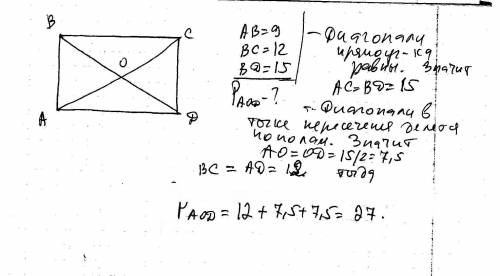 B
C
O
A
D
AB = 9
BC = 12
BD = 15
P AOD - ?
- Диагонали
прямоуг-ка
равны. Значит
AC = BD = 15
- Диагонали в
точке пересечения делятся
пополам. Значит
AO = OD = 15/2 = 7,5
BC = AD = 12 тогда
P AOD = 12 + 7,5 + 7,5 = 27.